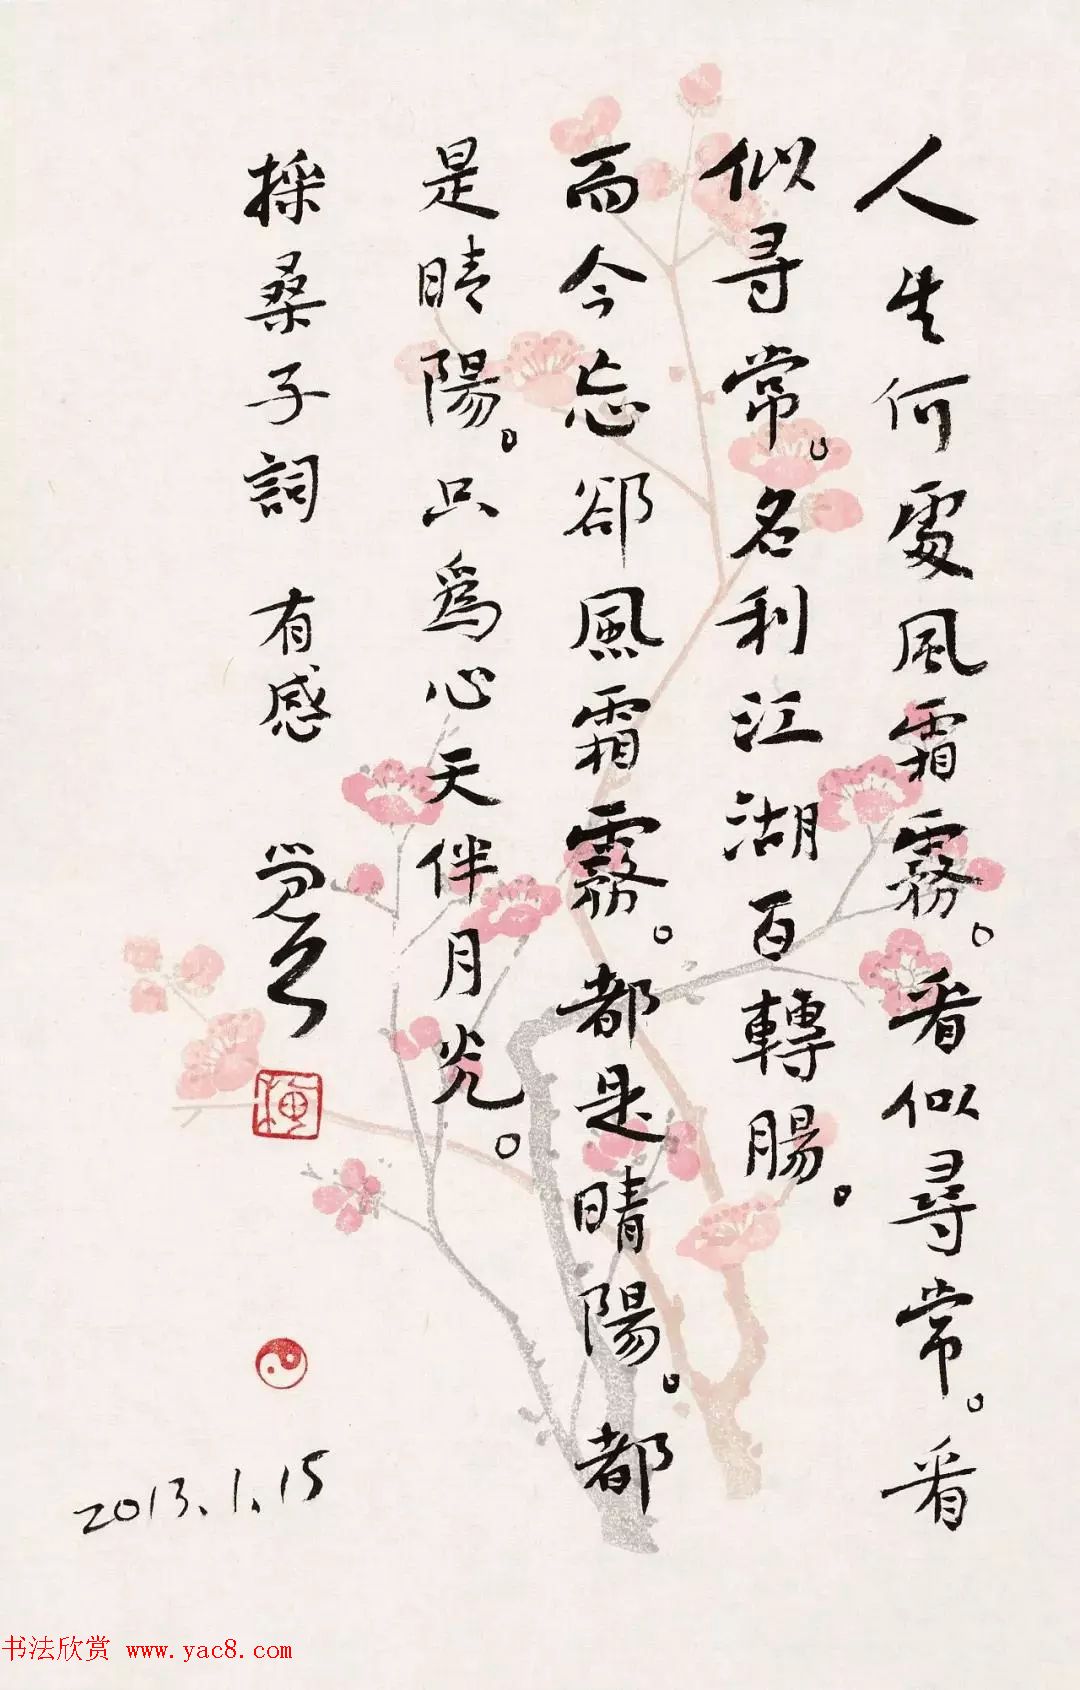 人生何處風霜霧。看似尋常。看
似尋常。名利江湖百轉腸。
而今忘卻風霜霧。都是晴陽。都
是晴陽。只為心天伴月光。
採桑子詞 有感
2013.1.15
书法欣赏 www.yac8.com